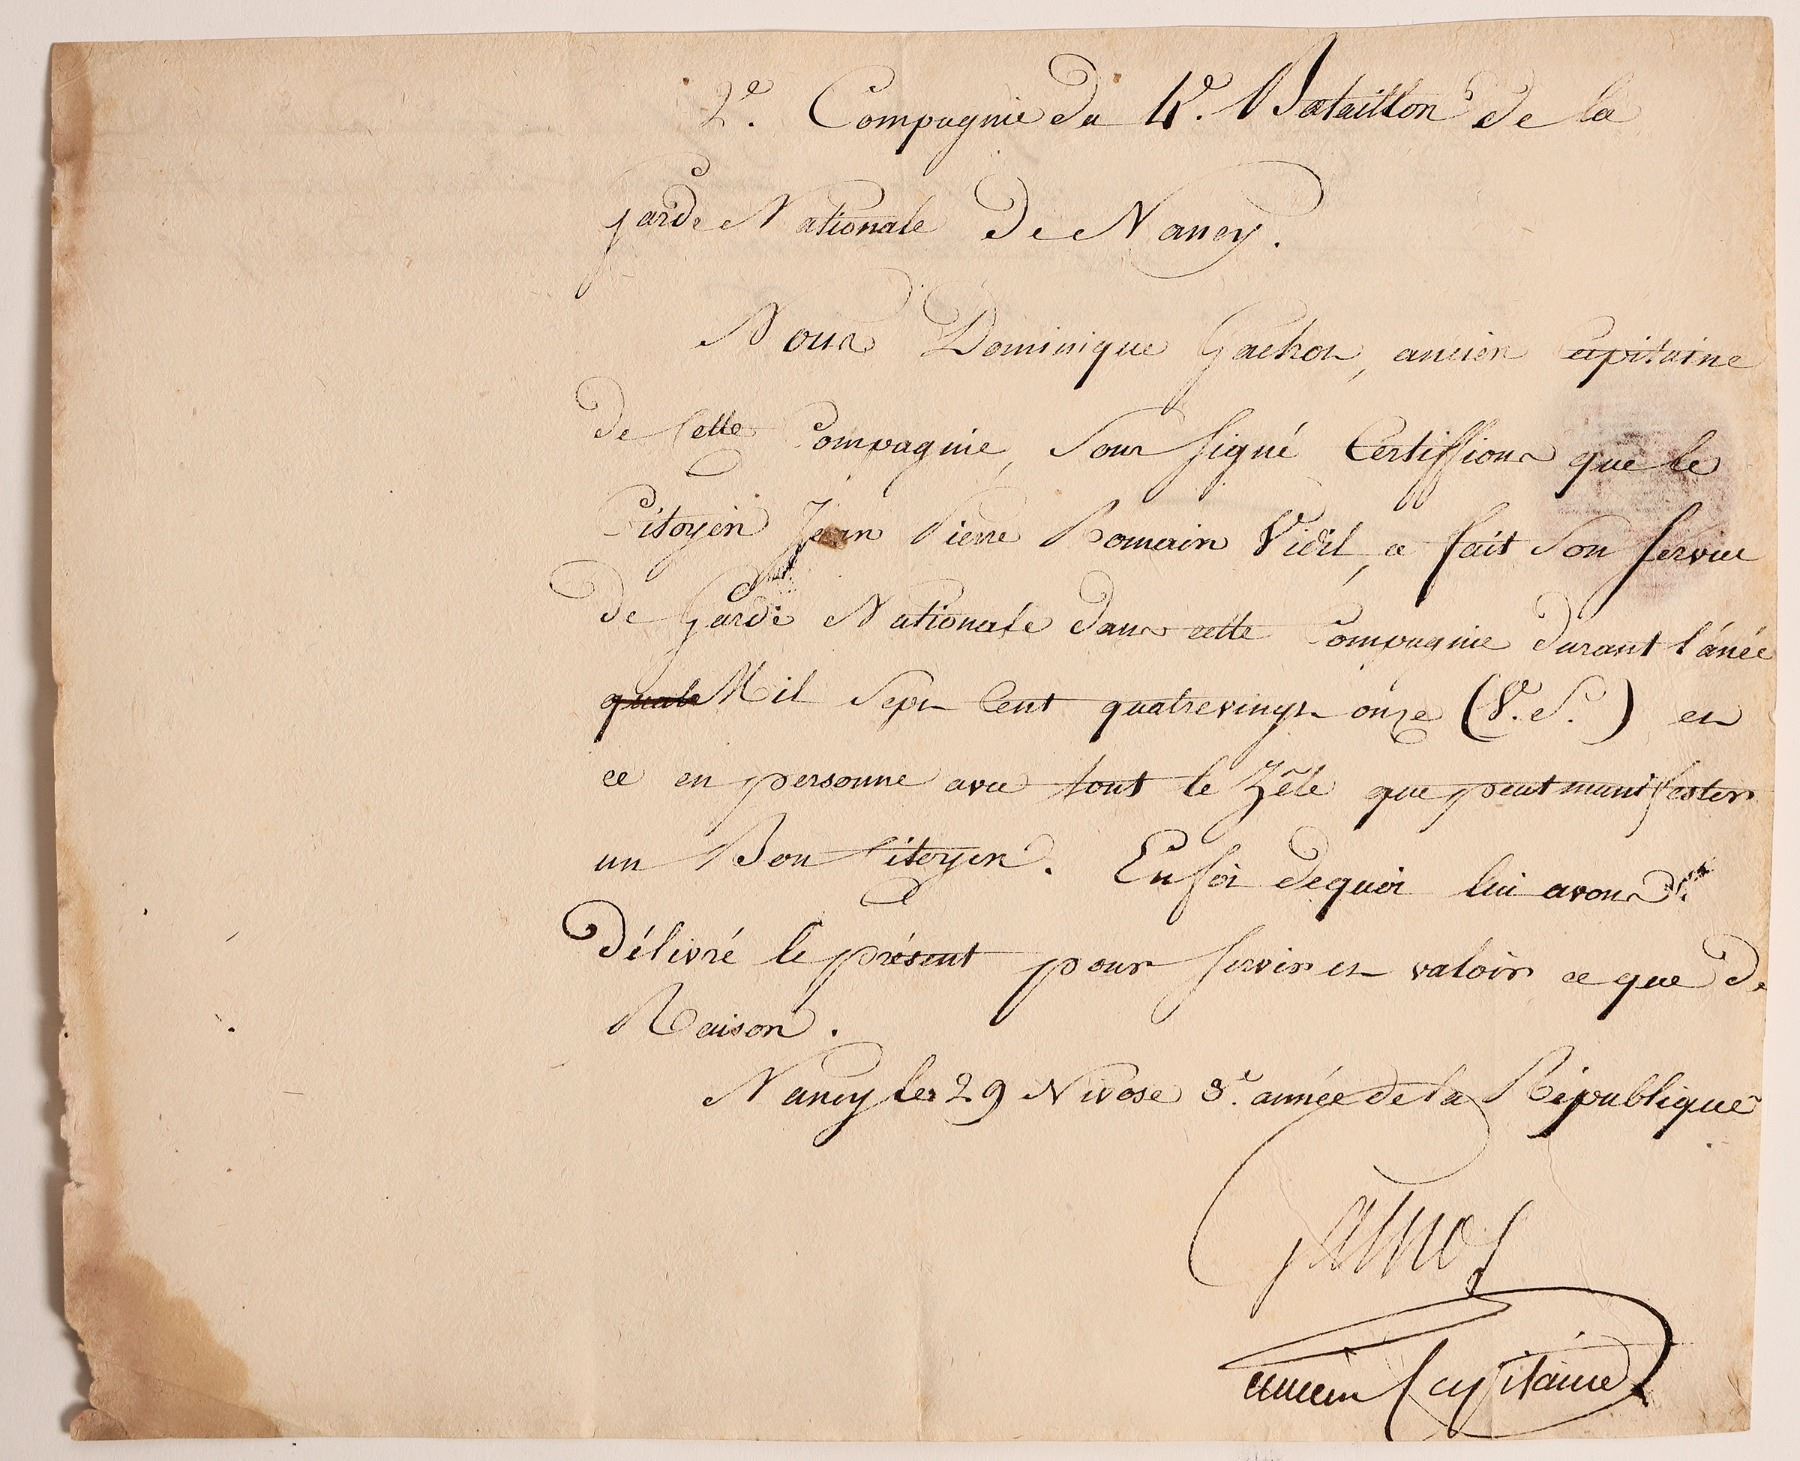 2e. Compagnie du 4e. Bataillon de la
garde Nationale de Nancy.
Nous Dominique Gachon, ancien Capitaine
de Cette Compagnie, Sous signé Certiffions que le
Citoyen Jean Pierre Romain Vidil, a fait Son service
de Garde Nationale dans cette Compagnie durant l'anée
Mil Sept Cent quatrevingt onze (V. S.) et
ce en personne avec tout le Zêle que peut manifester
un Bon Citoyen. En foi dequoi lui avons
délivré le présent pour servir et valoir ce que de
Raison.
Nancy les 29 Nivose 3e. année de la République
ancien Capitaine